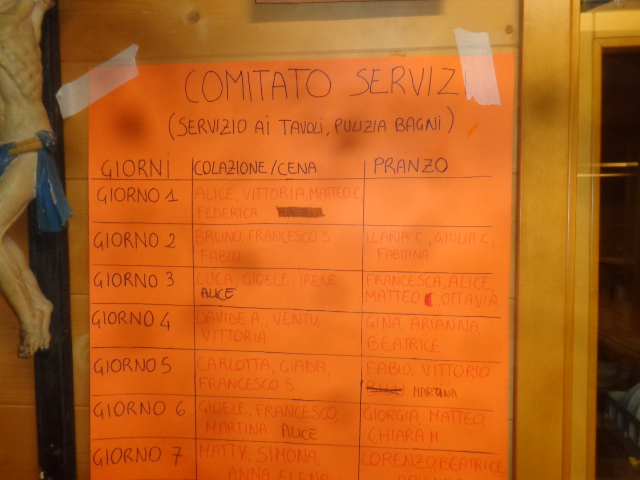 COMITATO SERVIZI
(SERVIZIO Ai TAVOLI, PULIZIA BAGNI)
GIORNI COLAZIONE/CENA PRANZO
GIORNO 1 ALICE, VITTORIA, MATTEO C,
FEDERICA
GIORNO 2 BRUNO, FRANCESCO S., ILARIA C., GIULIA C.,
FABIO FABIANA
GIORNO 3 LUCA, GIOELE, IRENE FRANCESCA, ALICE,
ALICE MATTEO , OTTAVIA
GIORNO 4 DAVIDE A., VENIU, GINA, ARIANNA
VITTORIA BEATRICE
GIORNO 5 CARLOTTA, GIADA, FABIO, VITTORIO
FRANCESCO S. MARTINA
GIORNO 6 GIOELE, FRANCESCO, GIORGIA, MATTEO,
MARTINA ALICE CHIARA M.
GIORNO 7 MATTY, SIMONA, LORENZO, BEATRICE,
ANNA ELENA